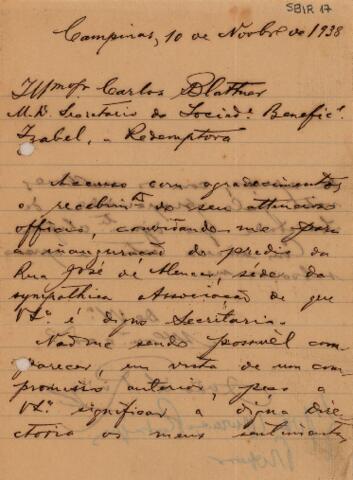 SBIR 17
Campinas, 10 de Novbro de 1938
Illmo Sr Carlos Blattner
M. D. Secretario da Sociade Benefice
Izabel, a Redemptora
Accuso com agradecimentos
o recebimto do seu attencioso
officio, convidando-me para
a inauguração do predio da
Rua José de Alencar, séde da
sympathica Associação de que
VSa é digno Secretario.
Não me sendo possivel com-
parecer, em vista de um com-
promisso anterior, peço a
VSa significar a digna dire-
ctoria os meus sentimentos